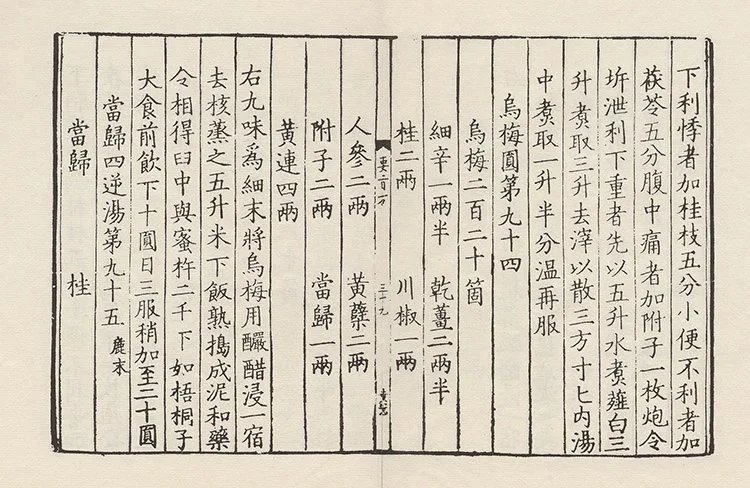 下利悸者加桂枝五分小便不利者加
茯苓五分腹中痛者加附子一枚炮令
坼泄利下重者先以五升水煮薤白三
升煮取三升去滓以散三方寸匕内湯
中煮取一升半分温再服
烏梅圓第九十四
烏梅二百二十箇
細辛一兩半　乾薑二兩半
桂二兩　川椒一兩
要百方
三十九
人參二兩　黃蘗二兩
附子二兩　當歸一兩
黃連四兩
右九味爲細末將烏梅用釅醋浸一宿
去核蒸之五升米下飯熟搗成泥和藥
令相得臼中與蜜杵二千下如梧桐子
大食前飲下十圓日三服稍加至二十圓
當歸四逆湯第九十五　鹿本
當歸　桂